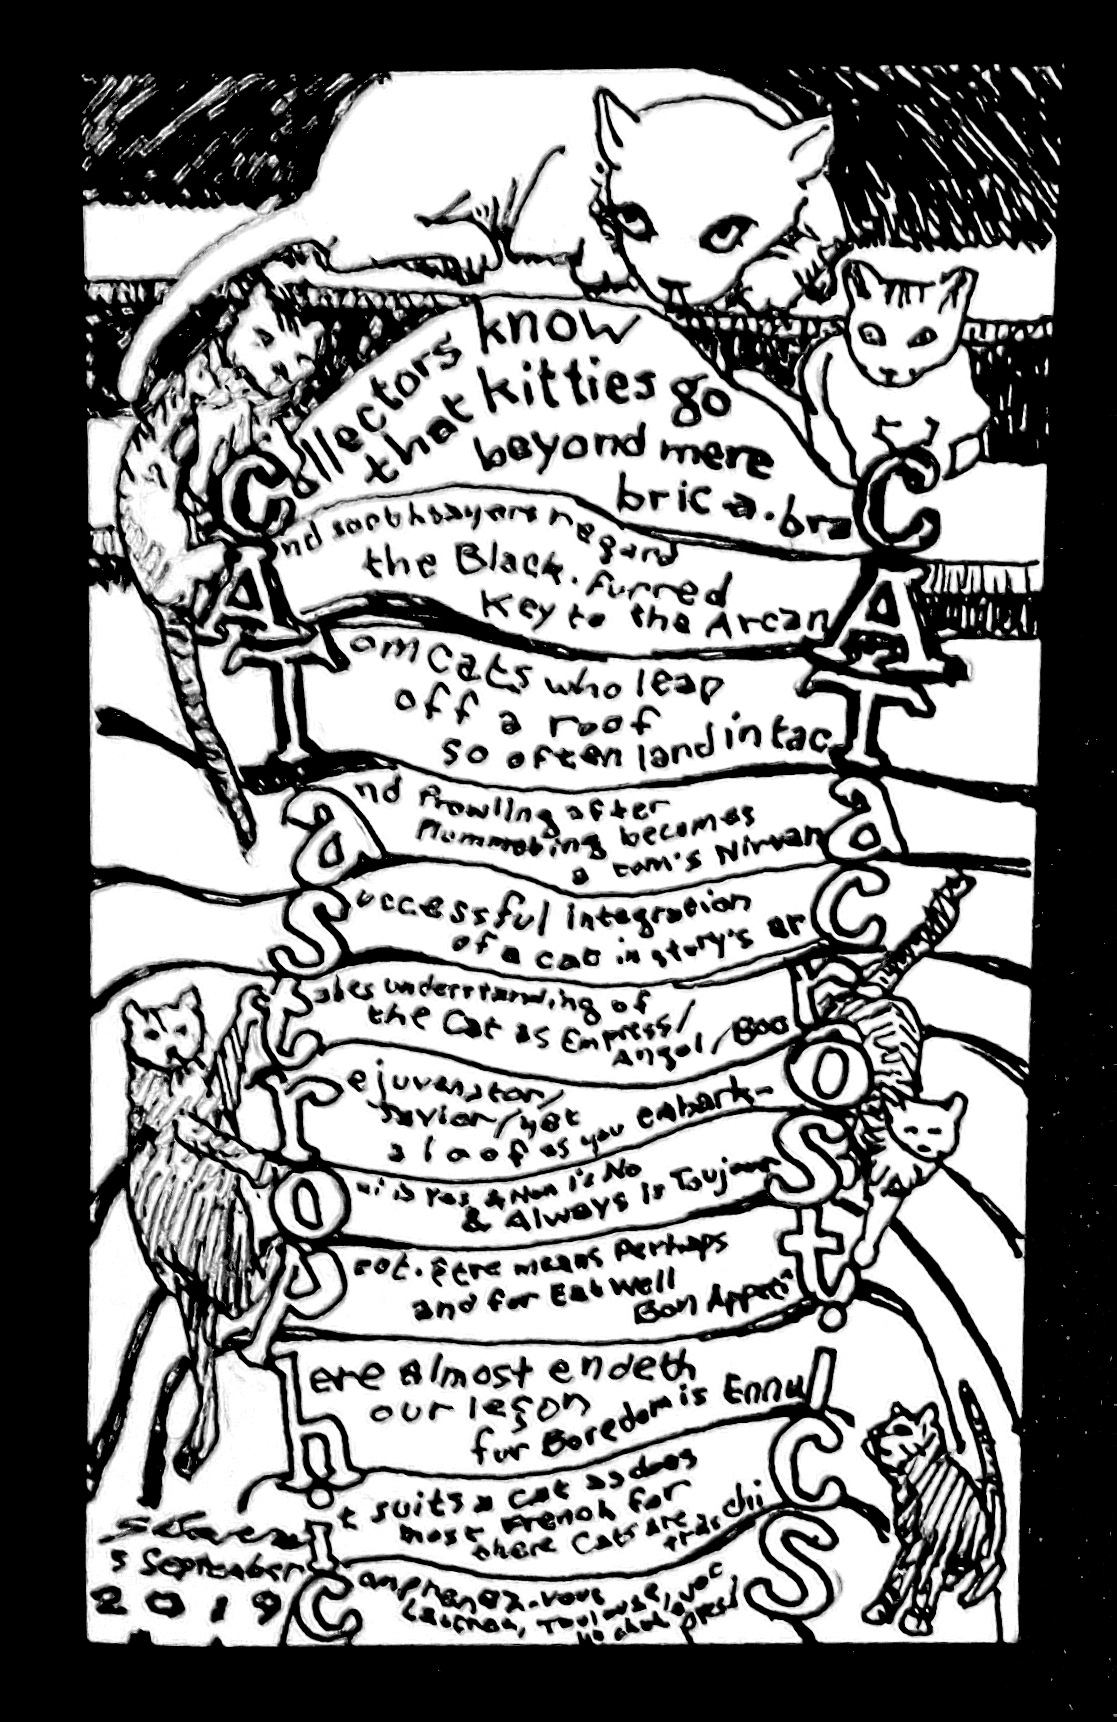 Collectors know
that kitties go
beyond mere
bric a. braC
And soothsayers regard
the Black. furred
Key to the ArcanA
Tom Cats who leap
off a roof
so often land intacT
and prowling after
plummeting becomes
a tom's Nirvana
successful integration
of a cat in story's arc
takes understanding of
the Cat as Empress/
Angel/Boor
rejuvenator/
Savior/yet
aloof as you embark-o
oui is Yes & Non is No
& Always is Toujours
peut.être means Perhaps
and for Eat Well
Bon Appetit
here almost endeth
our leçon
fur Boredom is Ennui
it suits a cat as does
most French for
there Cats are tras chic
5 September
2019
comprenez-vous
Lautrec, Toulouse,